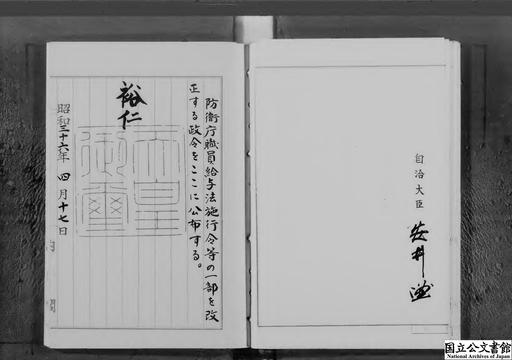 自治大臣 安井謙
防衛庁職員給与法施行令等の一部を改
正する政令をここに公布する。
裕仁
天皇
御璽
昭和三十六年 四月十七日
国立公文書館
National Archives of Japan